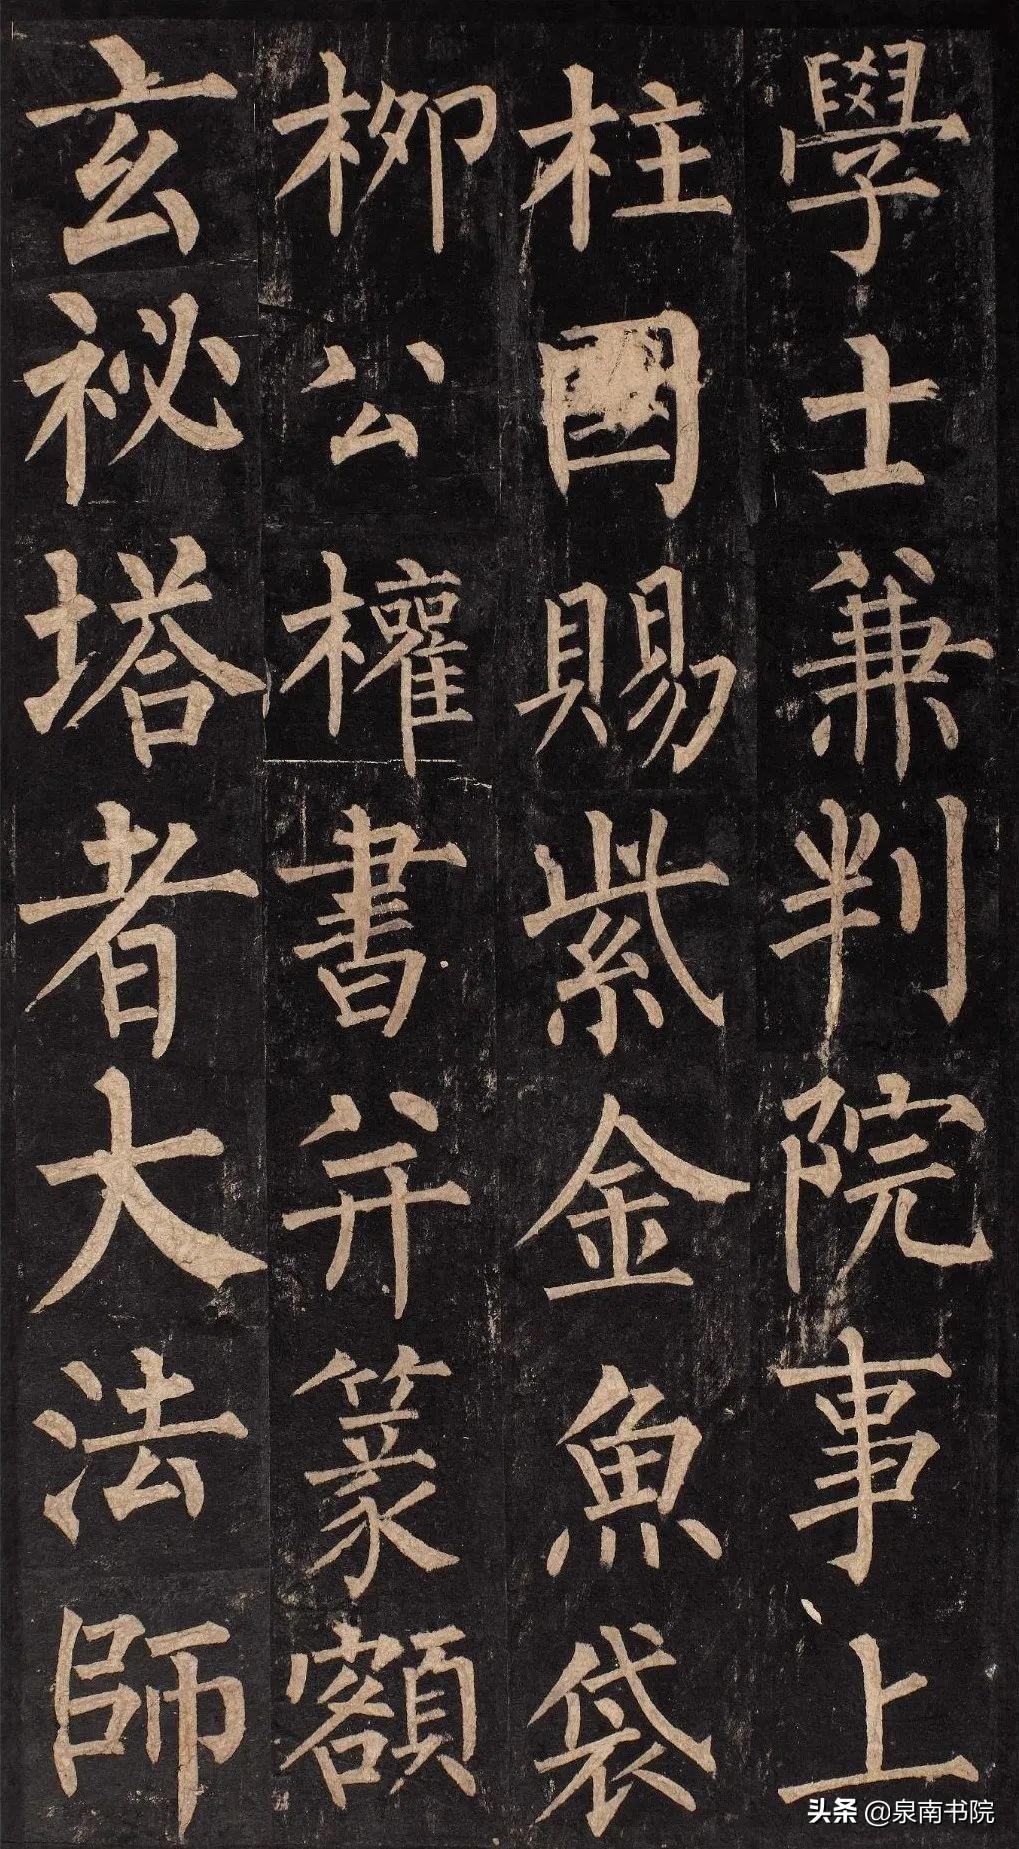 學士兼判院事上
柱國賜紫金魚袋
柳公權書并篆額
玄祕塔者大法師
头条 @泉南书院